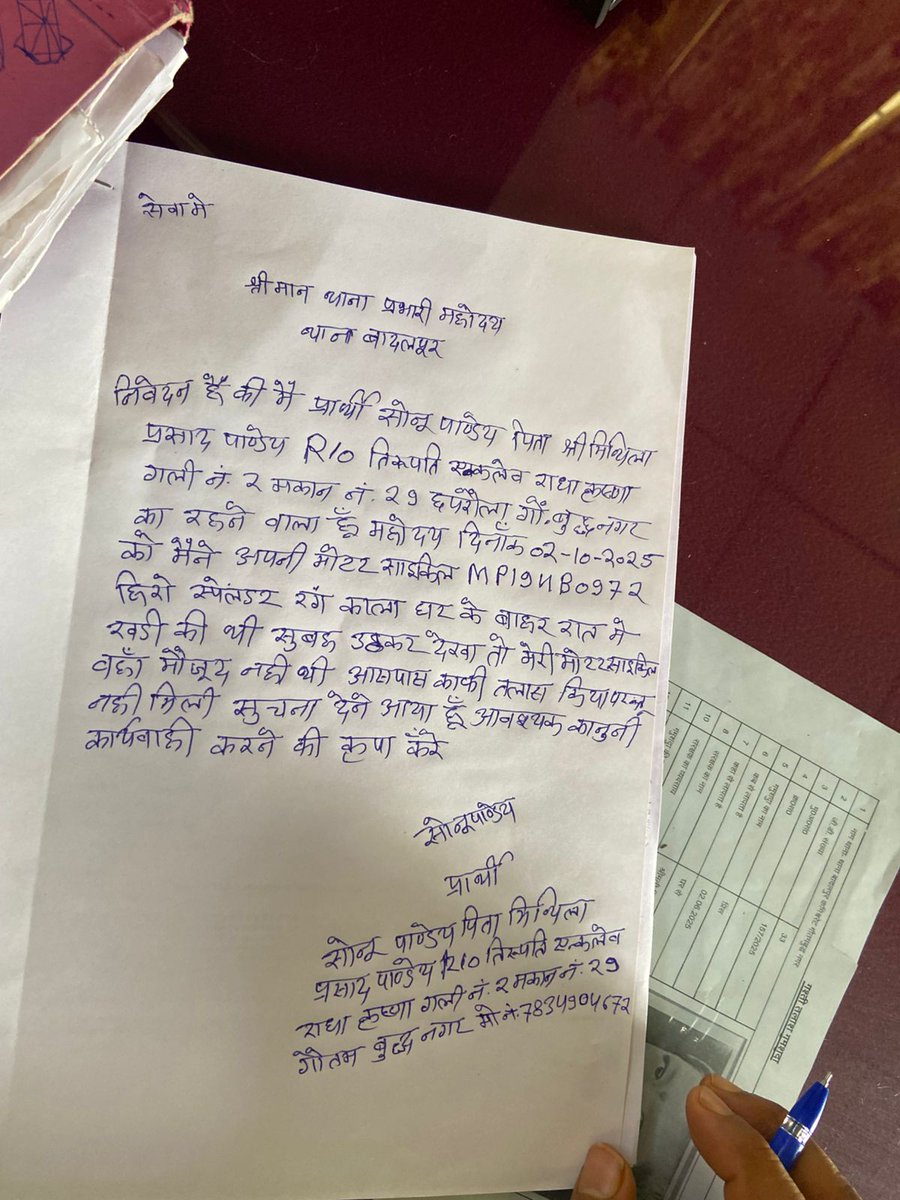 सेवा मे
श्रीमान थाना प्रभारी महोदय
थाना बादलपुर
निवेदन हैं की मै प्रार्थी सोनू पाण्डेय पिता श्री मिथिला
प्रसाद पाण्डेय R/o तिरूपति एन्कलेव राधा कृष्णा
गली नं. २ मकान नं. २९ छपरौला गौ. बुद्धनगर
का रहने वाला हूँ महोदय दिनाँक 02-10-2025
को मैने अपनी मोटर साइकिल MP19NB0972
हिरो स्पेलंडर रंग काला घर के बाहर रात मे
खडी की थी सुबह उठकर देखा तो मेरी मोटरसाइकिल
वहाँ मौजूद नही थी आसपास काफी तलास किया परन्तु
नही मिली सुचना देने आया हूँ आवश्यक कानुनी
कार्यवाही करने की कृपा करे
सोनू पाण्डेय
प्रार्थी
सोनू पाण्डेय पिता मिथिला
प्रसाद पाण्डेय R/o तिरुपति एन्कलेव
राधा कृष्णा गली नं. २ मकान नं. २९
गौतम बुद्ध नगर मो नं. 7834904672
गुमशुदा
1
2
3
33
4
157/2025
5
6
7
02.06.2025
8
10
11